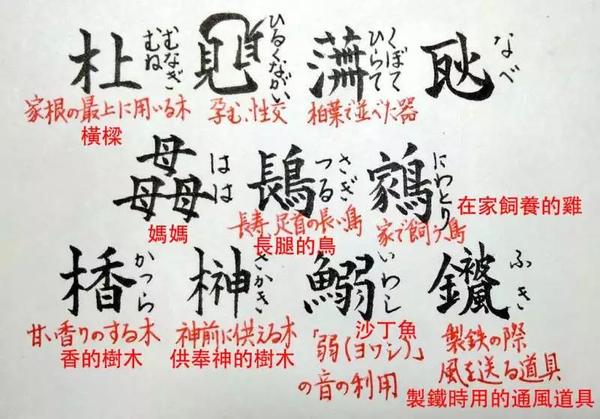 むなぎ
むね
ひる
くながい
くぼて
ひらて
なべ
家根の最上に用いる木
孕む、性交
柏葉で並べた器
橫樑
はは
さぎ
つる
にわとり
媽媽
長寿、足首の長い鳥
長腿的鳥
家で飼う鳥
在家飼養的雞
かつら
榊
さかき
鰯
いわし
ふき
甘い香りのする木
香的樹木
神前に供える木
供奉神的樹木
沙丁魚
「弱(ヨワシ)」
の音の利用
製鉄の際
風を送る道具
製鐵時用的通風道具